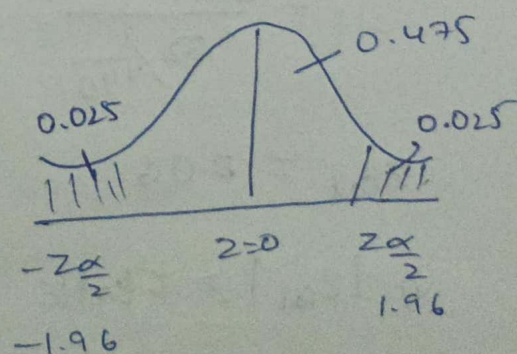 0.475
0.025
0.025
-Zα/2
Z=0
Zα/2
1.96
-1.96